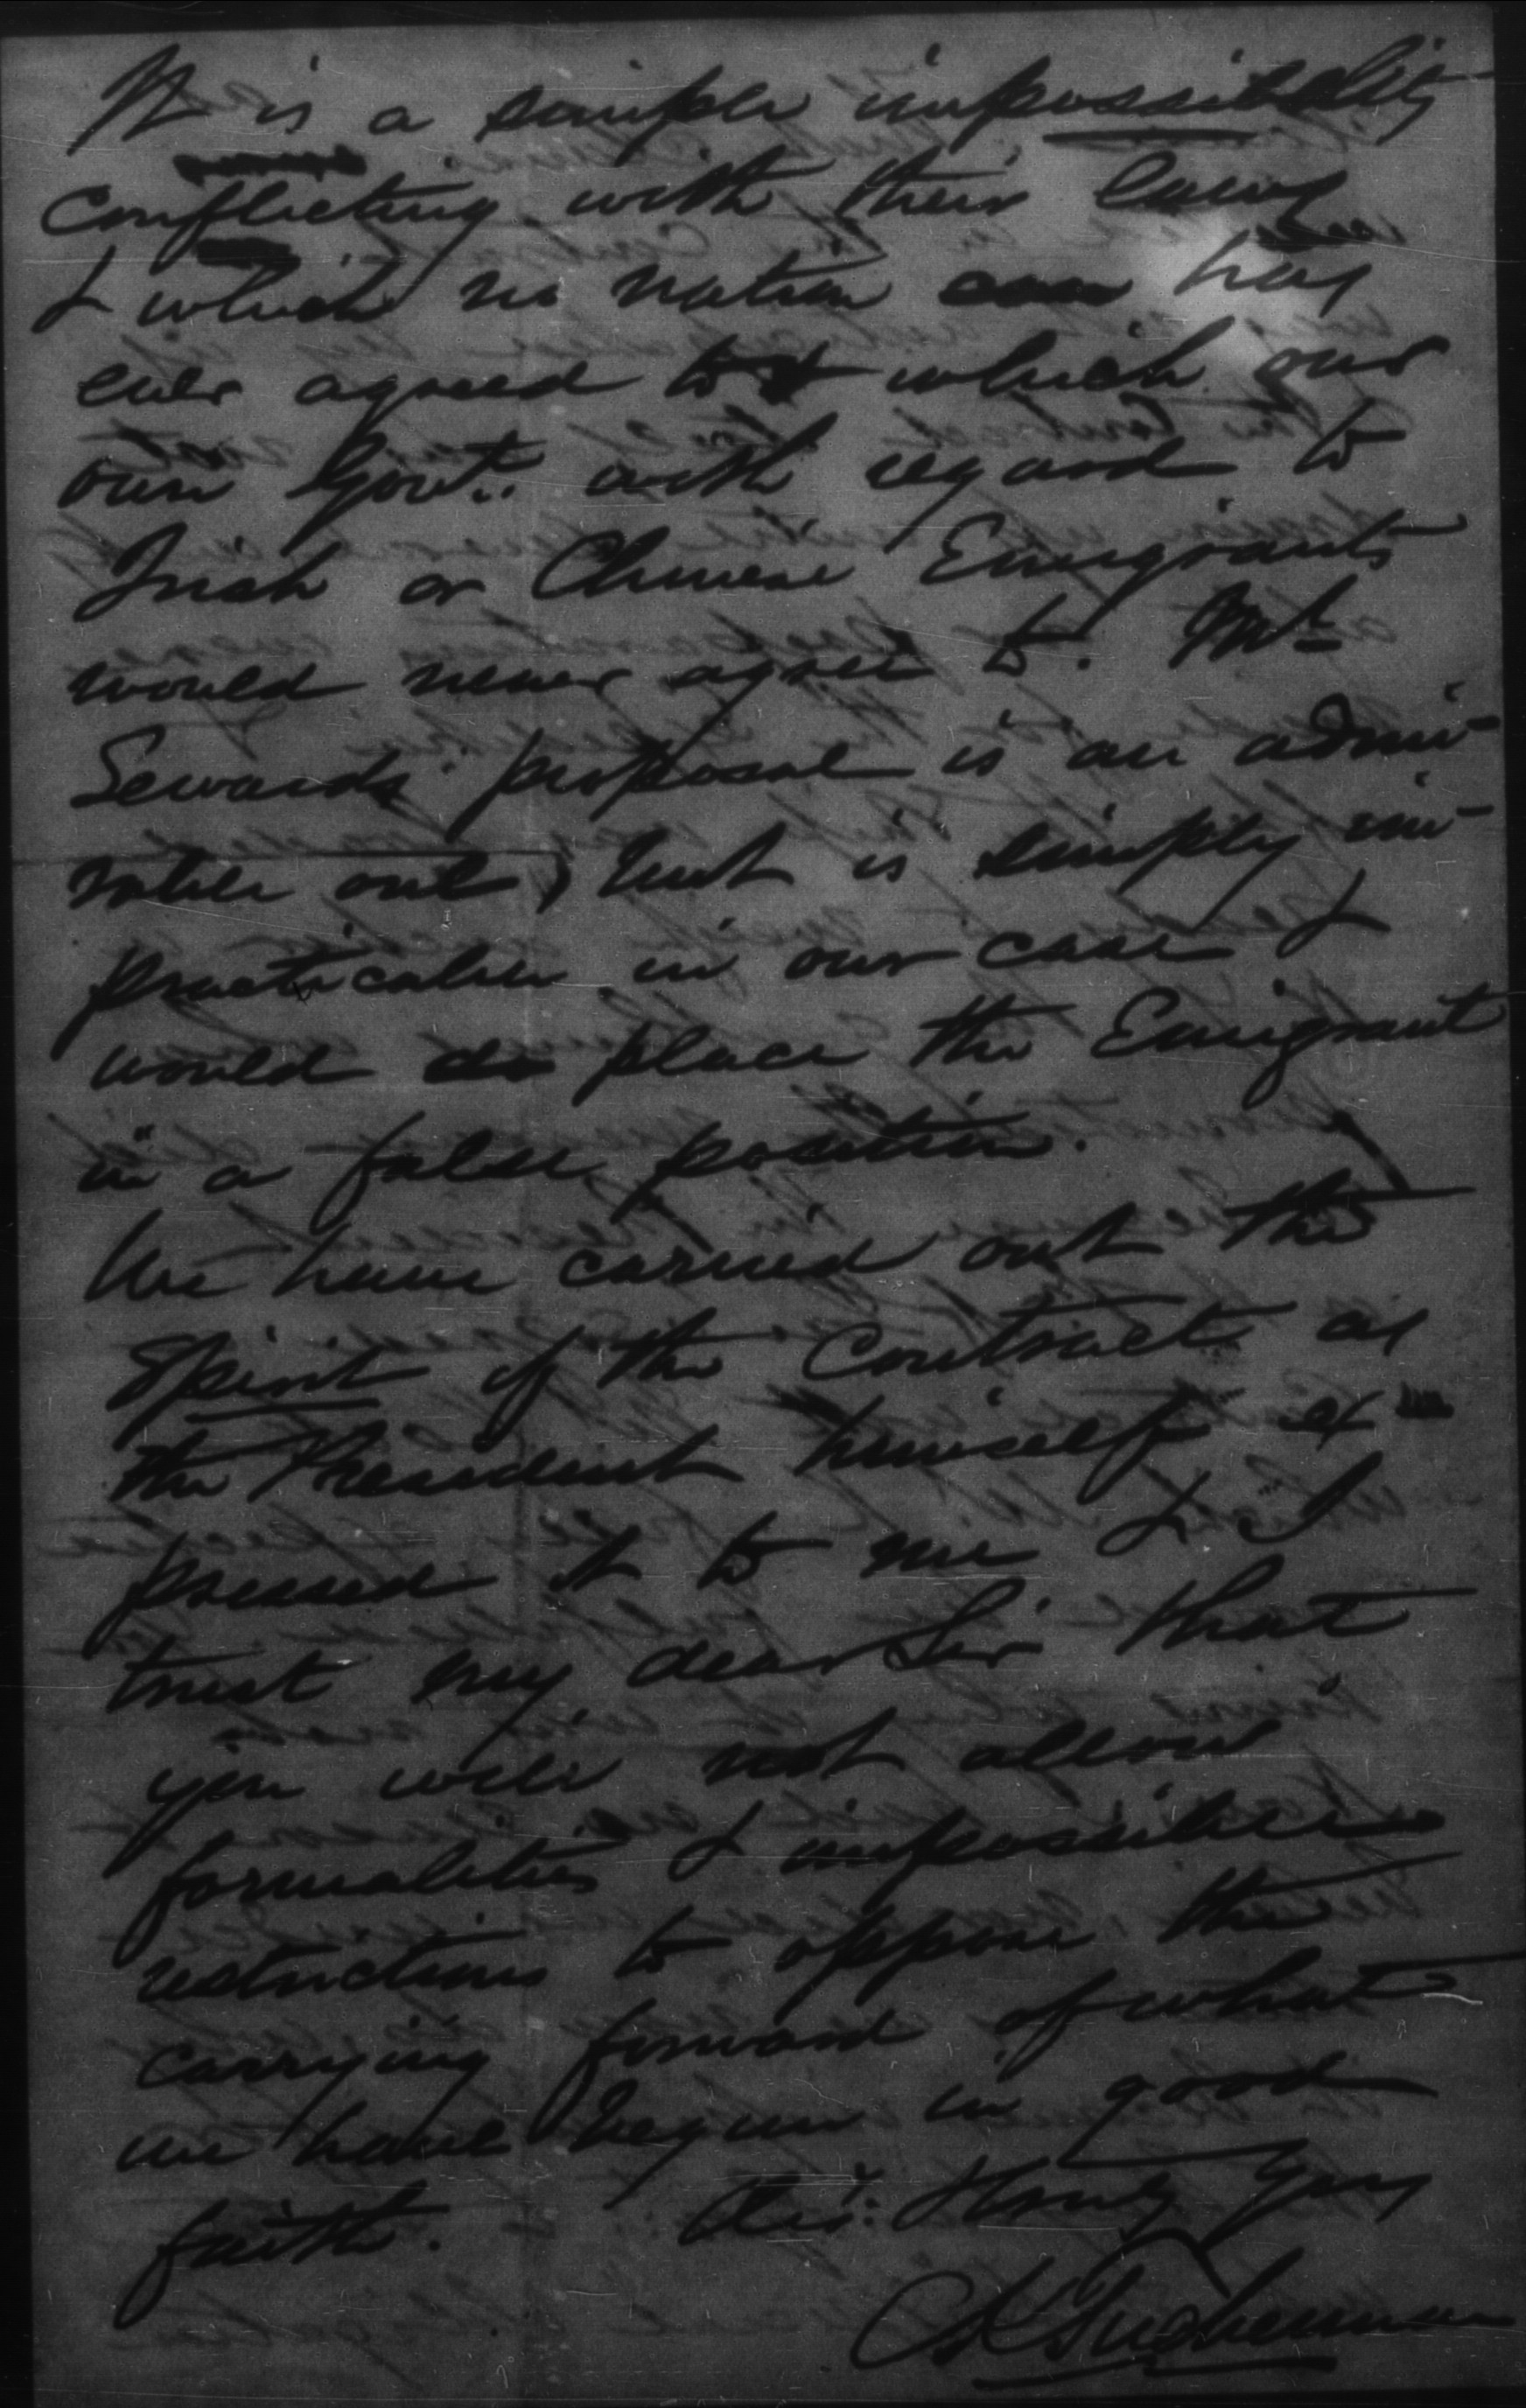 It is a simple impossibility
conflicting with their laws
& which no nation has
ever agreed to & which our
own Govt. with regard to
Irish or Chinese Emigrants
would never agree to. Mr
Sewards proposal is an admi-
rable one, but is simply im-
practicable in our case &
would place the Emigrant
in a false position.
We have carried out the
spirit of the Contract as
the President himself ex
pressed it to me & I
trust my dear Sir that
you will not allow
formalities & impossible
restrictions to oppose the
carrying forward of what
we have begun in good
faith. Very Truly Yrs
CK Tuckerman